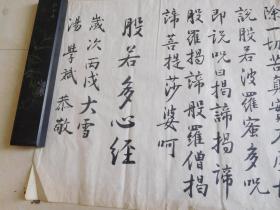 除一切苦真實
說般若波羅蜜多呪
即說呪曰揭諦揭諦
般羅揭諦般羅僧揭
諦菩提莎婆呵
般若多心經
歲次丙戌大雪
湯學斌 恭敬